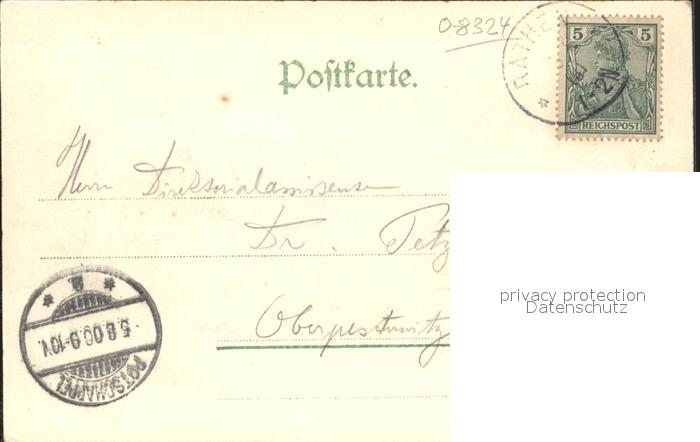 0-8324
5 5
RATHEN
1-2N
REICHSPOST
Postkarte.
Herrn Direktorialassistent
Dr. Petz
privacy protection
Datenschutz
Oberpesterwitz
5.8.00.9-10V.
POTSCHAPPEL